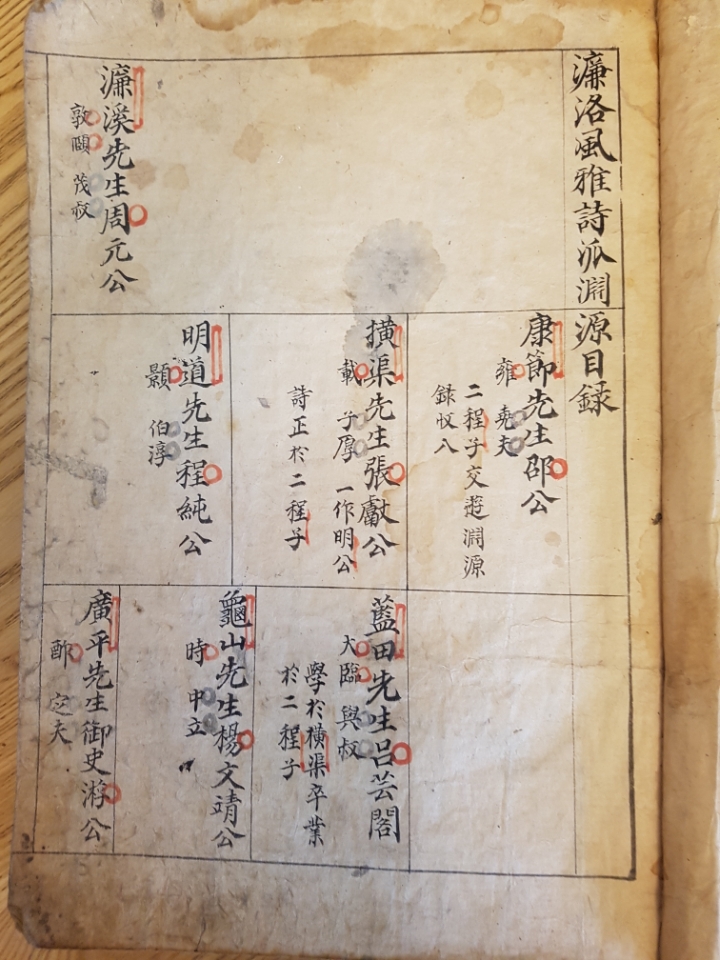 濂洛風雅詩泒淵源目錄
濂溪先生周元公
敦頤 茂叔
康節先生邵公
雍 堯夫
二程子交遊淵源
錄收入
橫渠先生張獻公
載 子厚 一作明公
詩正於二程子
明道先生程純公
顥 伯淳
藍田先生呂芸閣
大臨 與叔
學於橫渠卒業
於二程子
龜山先生楊文靖公
時 中立
廣平先生御史游公
酢 定夫